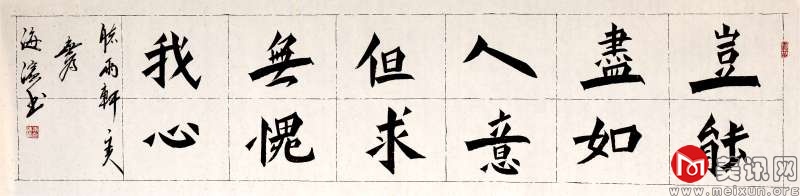 豈能
盡如
人意
但求
無愧
我心
聽雨軒主
海濤書
美讯网
www.meixun.org